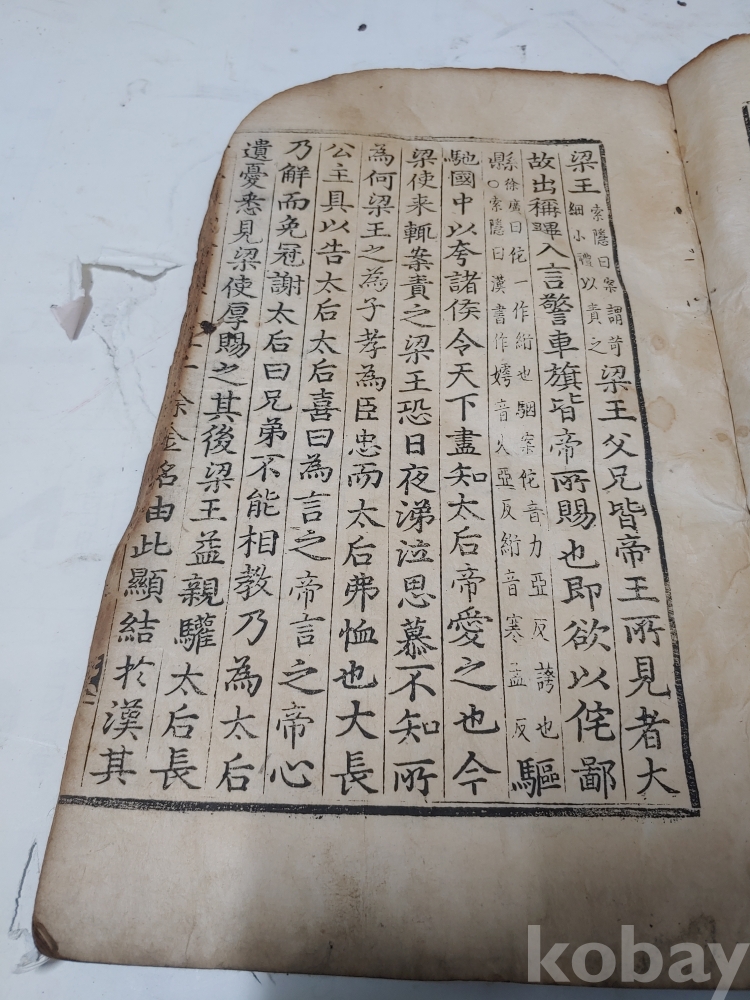 梁王
索隱曰案謂苛
細小禮以責之
梁王父兄皆帝王所見者大
故出稱蹕入言警車旗皆帝所賜也即欲以侘鄙
縣
徐廣曰侘一作紨也駰案侘音力亞反誇也
○索隱曰漢書作嫮音火亞反紨音寒孟反
驅
馳國中以夸諸侯令天下盡知太后帝愛之也今
梁使来輒案責之梁王恐日夜涕泣思慕不知所
為何梁王之為子孝為臣忠而太后弗恤也大長
公主具以告太后太后喜曰為言之帝言之帝心
乃解而免冠謝太后曰兄弟不能相教乃為太后
遺憂悉見梁使厚賜之其後梁王益親驩太后長
餘金名由此顯結於漢其
kobay